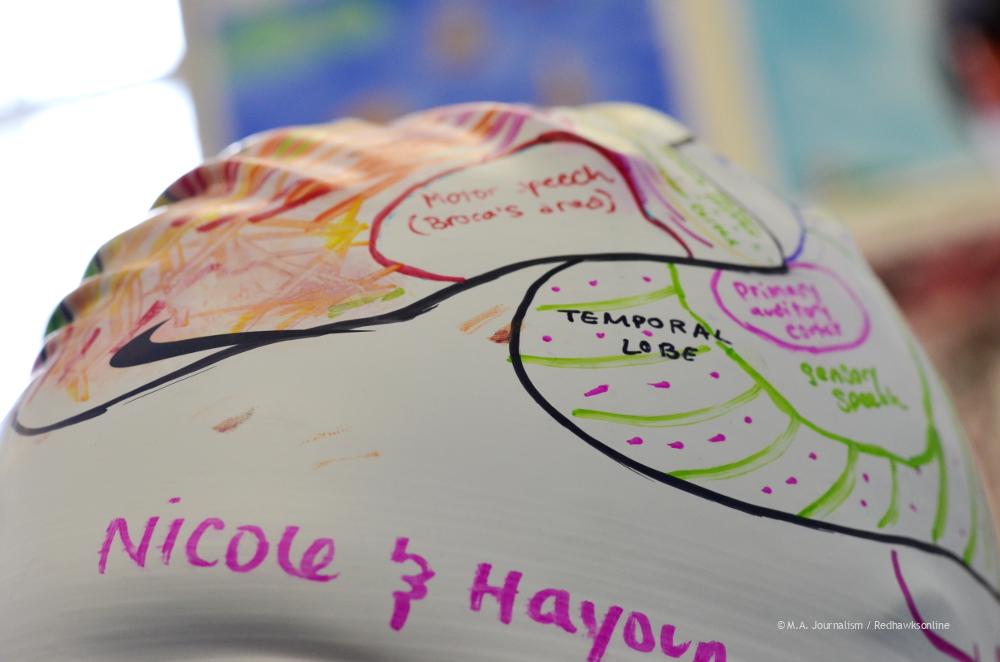 Motor speech
(Broca's area)
Primary
auditory
TEMPORAL
LOBE
sensory
Speech
Nicole & Hayoun
©M.A. Journalism / Redhawksonline